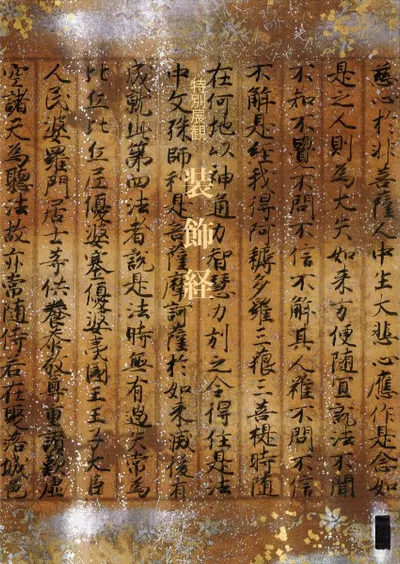 特別展観
装飾経
慈心於非菩薩人中生大悲心應作是念如
是之人則為大失如来方便随宜説法不聞
不知不覺不問不信不解其人雖不問不信
不解是経我得阿耨多羅三藐三菩提時随
在何地以神通力智慧力引之令得住是法
中文殊師利是菩薩摩訶薩於如来滅後有
成就此第四法者説是法時無有過失常為
比丘比丘尼優婆塞優婆夷國王王子大臣
人民婆羅門居士等供養恭敬尊重讃歎虚
空諸天為聽法故亦常随侍若在聚落城邑